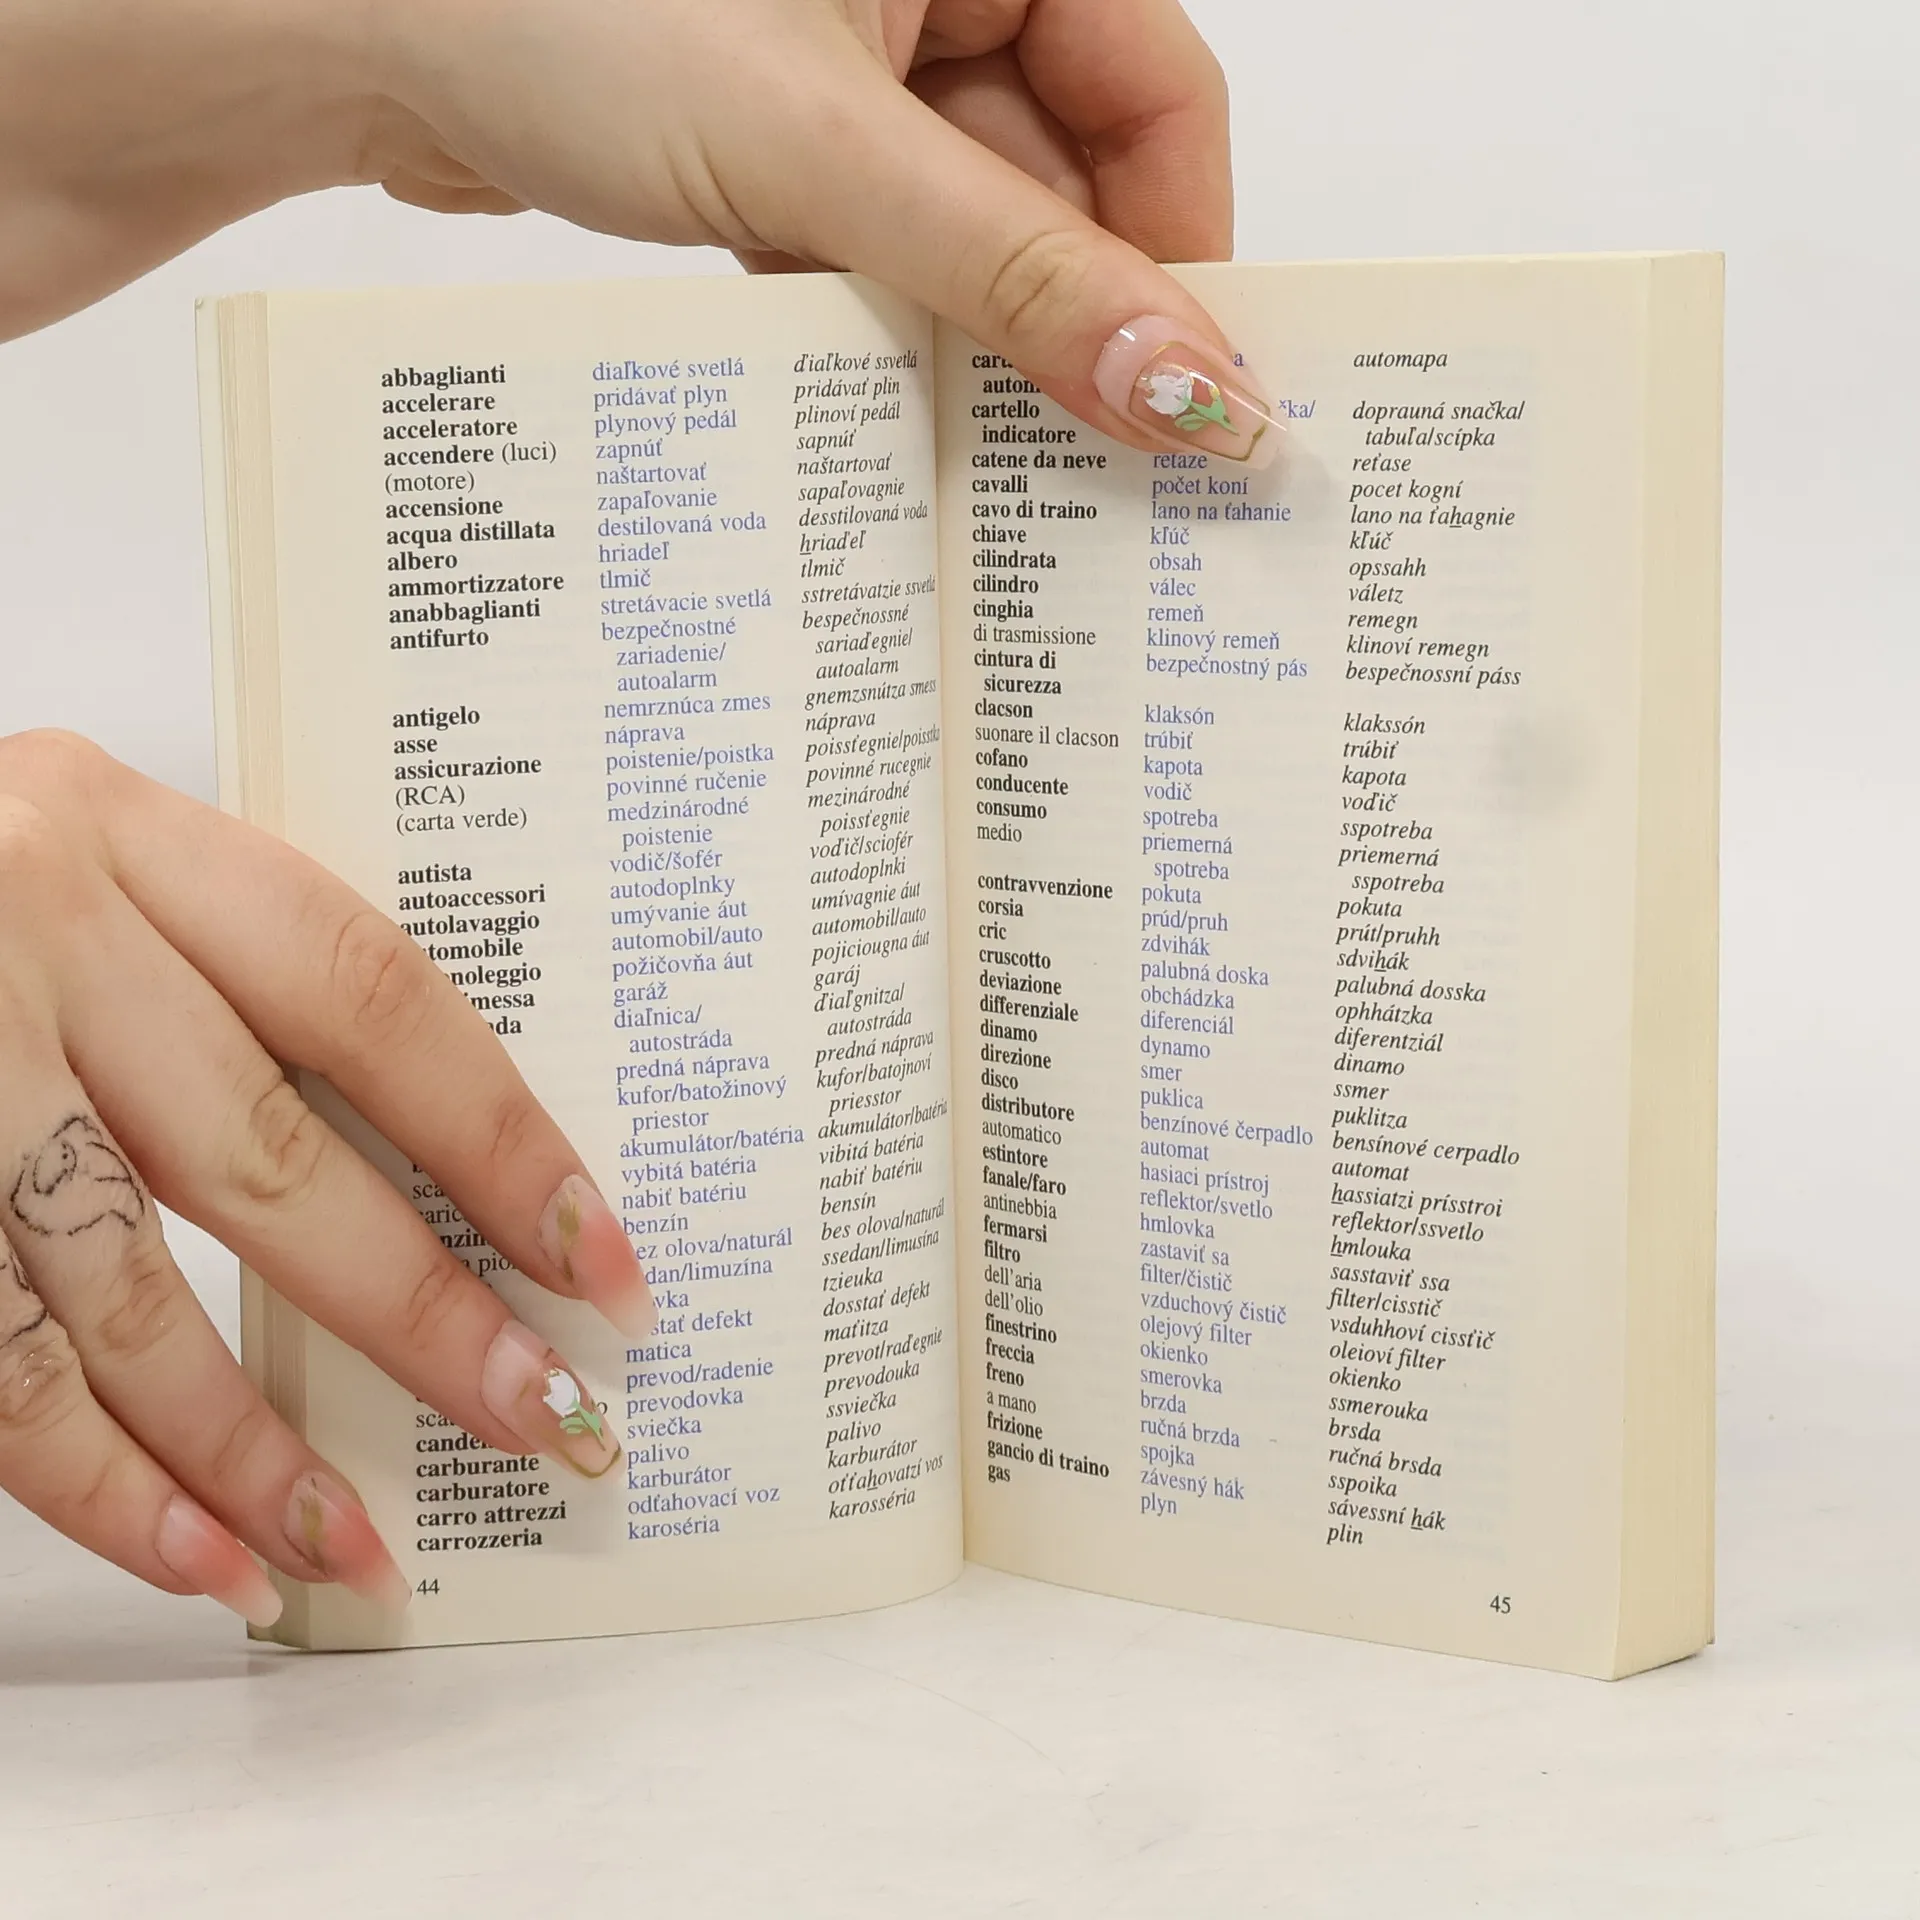 abbaglianti diaľkové svetlá ďiaľkové ssvetlá
accelerare pridávať plyn pridávať plin
acceleratore plynový pedál plinoví pedál
accendere (luci) zapnúť sapnúť
(motore) naštartovať naštartovať
accensione zapaľovanie sapaľovagnie
acqua distillata destilovaná voda desstilovaná voda
albero hriadeľ hriaďeľ
ammortizzatore tlmič tlmič
anabbaglianti stretávacie svetlá sstretávatzie ssvetlá
antifurto bezpečnostné bespečnossné
zariadenie/ sariaďegnie/
autoalarm autoalarm
antigelo nemrznúca zmes gnemzsnútza smess
asse náprava náprava
assicurazione poistenie/poistka poissťegnie/poisstka
(RCA) povinné ručenie povinné rucegnie
(carta verde) medzinárodné mezinárodné
poistenie poissťegnie
autista vodič/šofér voďič/sciofér
autoaccessori autodoplnky autodoplnki
autolavaggio umývanie áut umívagnie áut
automobil/auto automobil/auto
požičovňa áut pojiciougna áut
garáž garáj
diaľnica/ ďiaľgnitza/
autostráda autostráda
predná náprava predná náprava
kufor/batožinový kufor/batojnoví
priestor priesstor
akumulátor/batéria akumulátor/batéria
vybitá batéria vibitá batéria
nabiť batériu nabiť batériu
benzín bensín
olova/naturál bes olova/naturál
ssedan/limusína
tzieuka
defekt dosstať defekt
matica maťitza
prevod/radenie prevot/raďegnie
prevodovka prevodouka
sviečka ssviečka
palivo palivo
carburante karburátor karburátor
carburatore odťahovací voz oťťahovatzí vos
carro attrezzi karoséria karosséria
carrozzeria
44
automapa
cartello dopraunná snačka/
indicatore tabuľa/scípka
catene da neve reťaze reťase
cavalli počet koní pocet kogní
cavo di traino lano na ťahanie lano na ťahagnie
chiave kľúč kľúč
cilindrata obsah opssahh
cilindro válec váletz
cinghia remeň remegn
di trasmissione klinový remeň klinoví remegn
cintura di bezpečnostný pás bespečnossní páss
sicurezza
clacson klaksón klakssón
suonare il clacson trúbiť trúbiť
cofano kapota kapota
conducente vodič voďič
consumo spotreba sspotreba
medio priemerná priemerná
spotreba sspotreba
contravvenzione pokuta pokuta
corsia prúd/pruh prút/pruhh
cric zdvihák sdvihák
cruscotto palubná doska palubná dosska
deviazione obchádzka ophhátzka
differenziale diferenciál diferentziál
dinamo dynamo dinamo
direzione smer ssmer
disco puklica puklitza
distributore benzínové čerpadlo bensínové cerpadlo
automatico automat automat
estintore hasiaci prístroj hassiatzi prísstroi
fanale/faro reflektor/svetlo reflektor/ssvetlo
antinebbia hmlovka hmlouka
fermarsi zastaviť sa sasstaviť ssa
filtro filter/čistič filter/cisstič
dell'aria vzduchový čistič vsduhhoví cissťič
dell'olio olejový filter oleioví filter
finestrino okienko okienko
freccia smerovka ssmerouka
freno brzda brsda
a mano ručná brzda ručná brsda
frizione spojka sspoika
gancio di traino závesný hák sávessní hák
gas plyn plin
45